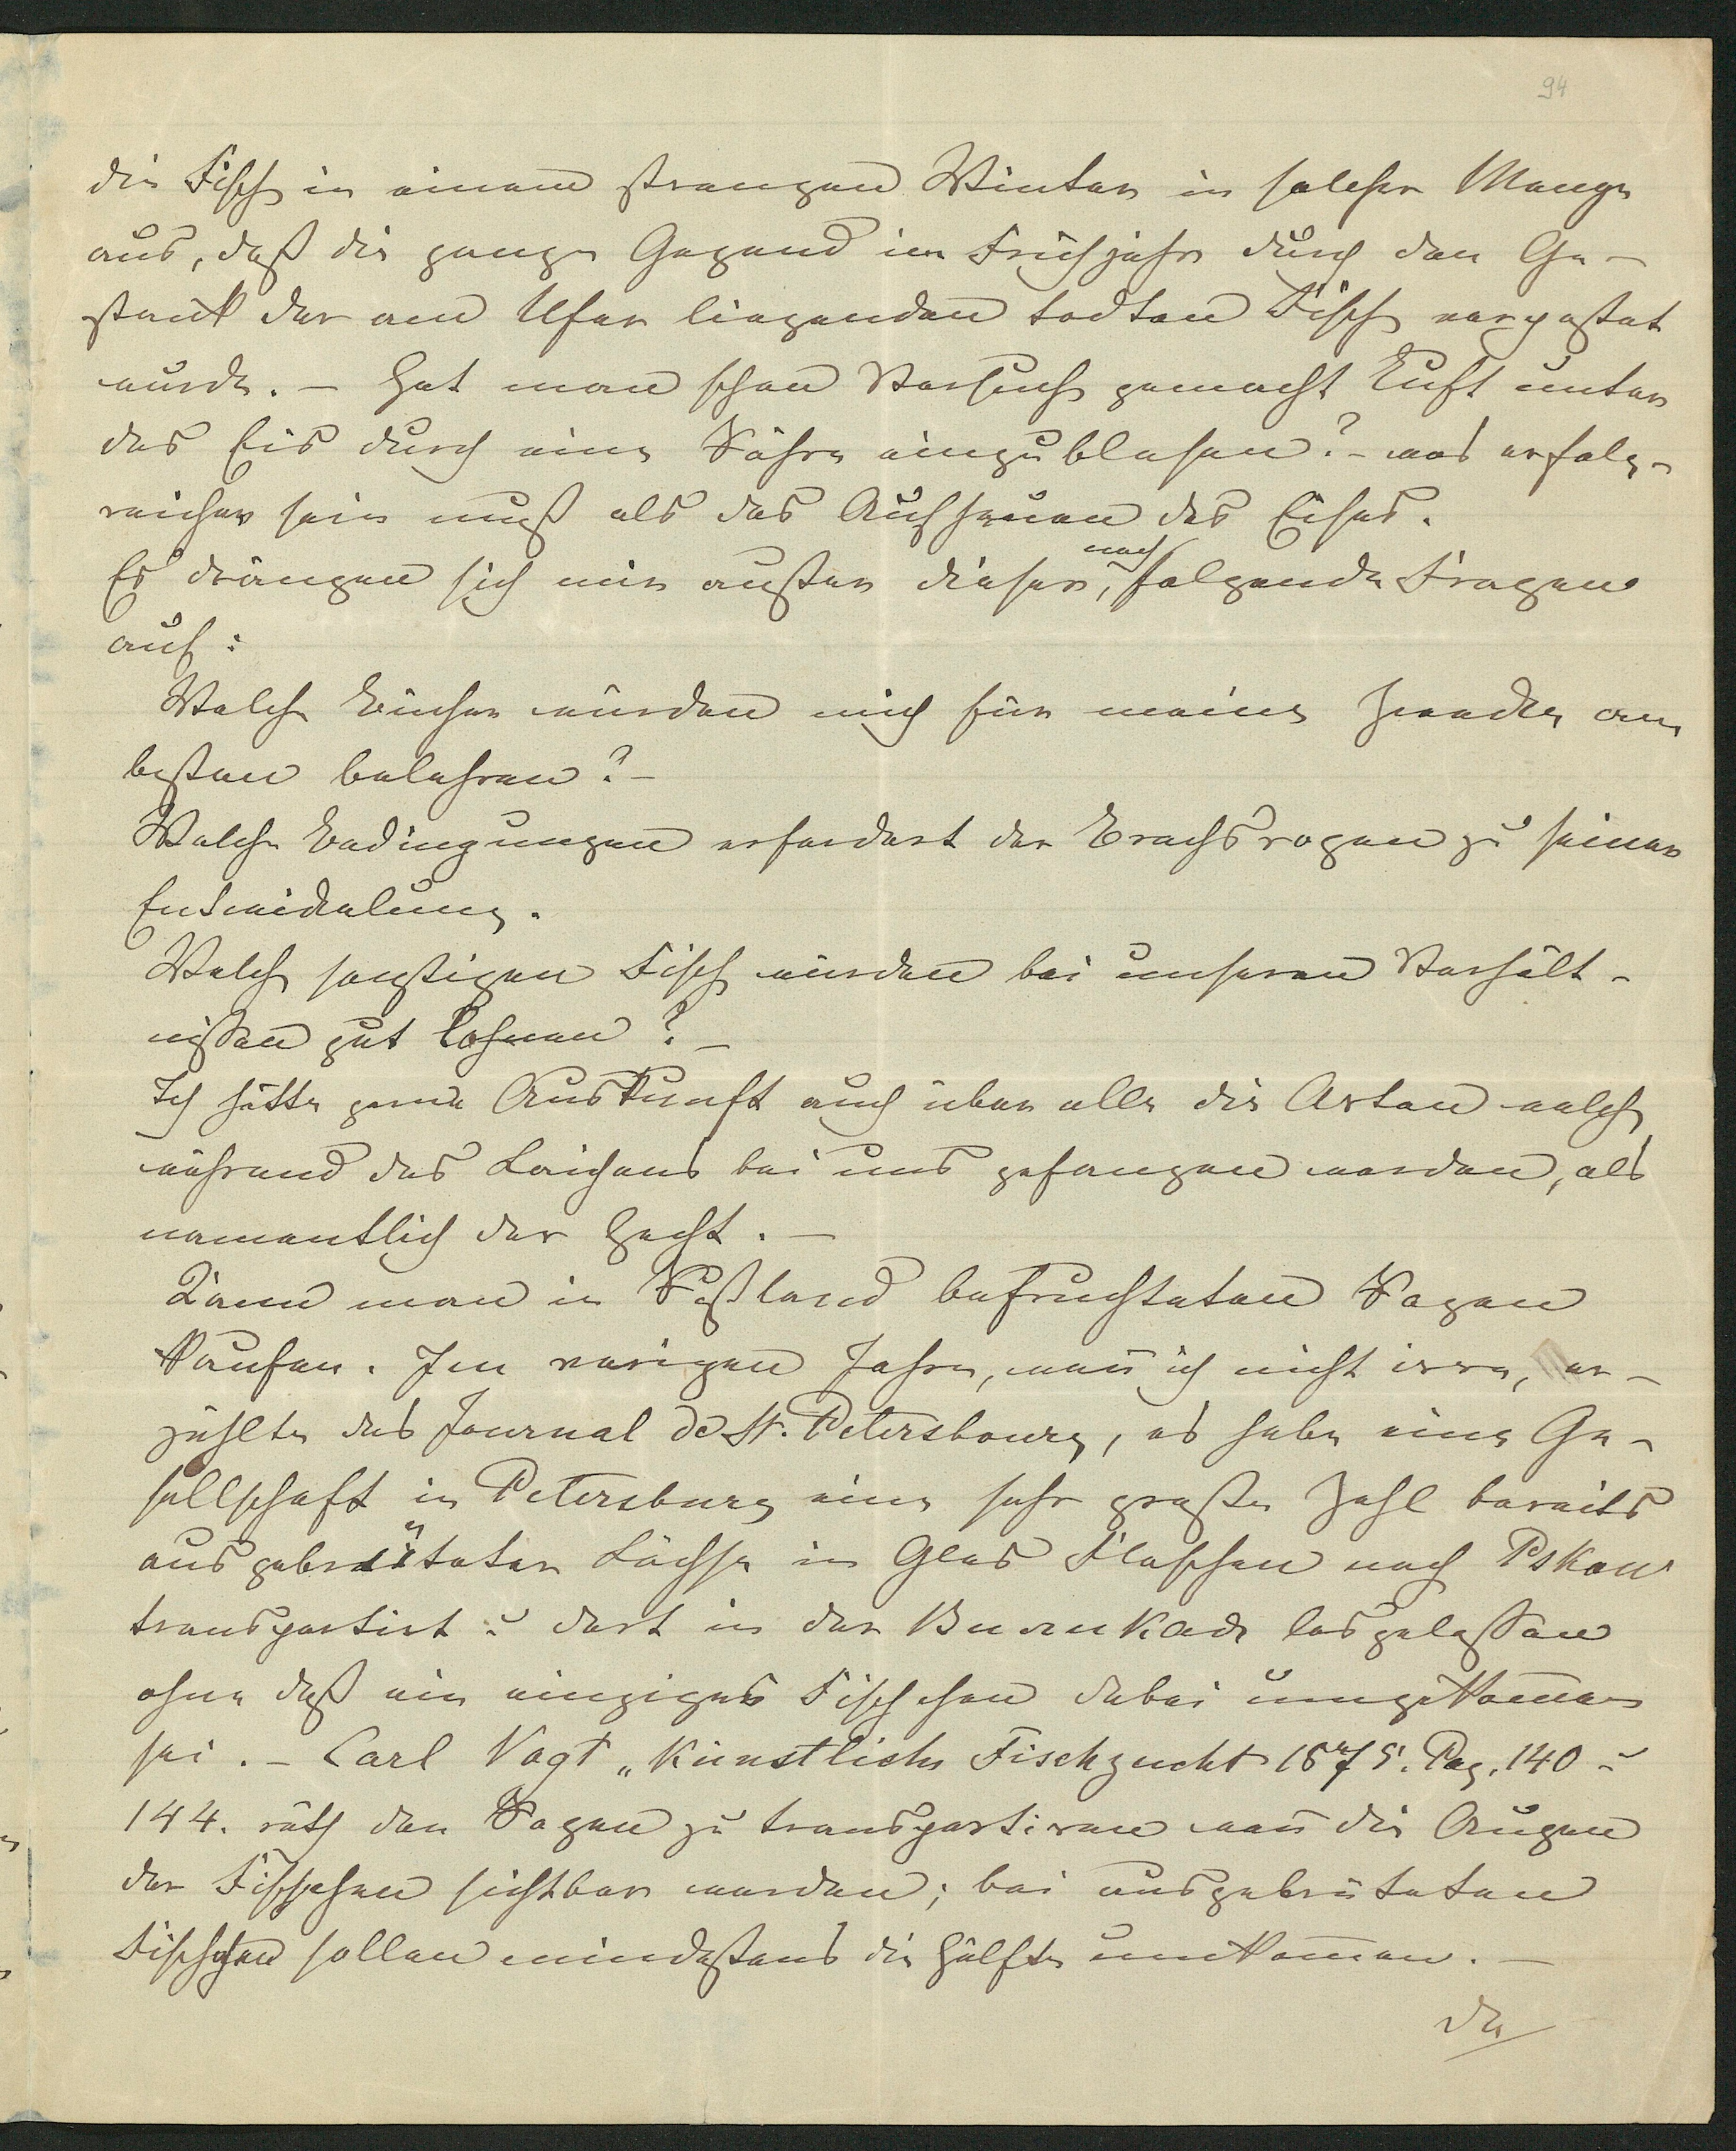 94
die Fische in einem strengen Winter in solcher Menge
aus, daß die ganze Gegend im Frühjahr durch den Ge-
stank der am Ufer liegenden todten Fische verpestet
wurde. – Hat man schon Versuche gemacht Luft unter
das Eis durch eine Röhre einzublasen? – was erfolg-
reicher sein muß als das Aufhauen des Eises.
Es drängen sich mir außer dieser, noch folgende Fragen
auf:
Welche Bücher würden mich für meine Zwecke am
besten belehren? –
Welche Bedingungen erfordert der Brachsrogen zu seiner
Entwickelung.
Welche sonstigen Fische würden bei unseren Verhält-
nissen gut lohnen? –
Ich hätte gerne Auskunft auch über alle die Arten welche
während des Laichens bei uns gefangen werden, als
namentlich der Hecht. –
Kann man in Rußland befruchteten Rogen
kaufen. Im vorigen Jahre, wenn̄ ich nicht irre, er-
zählte das Journal de St. Petersbourg, es habe eine Ge-
sellschaft in Petersburg eine sehr große Zahl bereits
ausgebrüteter Lächse in Glas Flaschen nach Pskow
transportirt u dort in der losgelassen
ohne daß ein einziges Fischchen dabei umgekom̄en
sei. – Carl Vogt „Künstliche Fischzucht 1875. Pag. 140 u
144. räth den Rogen zu transportiren wen̄ die Augen
der Fischchen sichtbar werden; bei ausgebrüteten
Fischchen sollen mindestens die Hälfte umkom̄en. –
Da